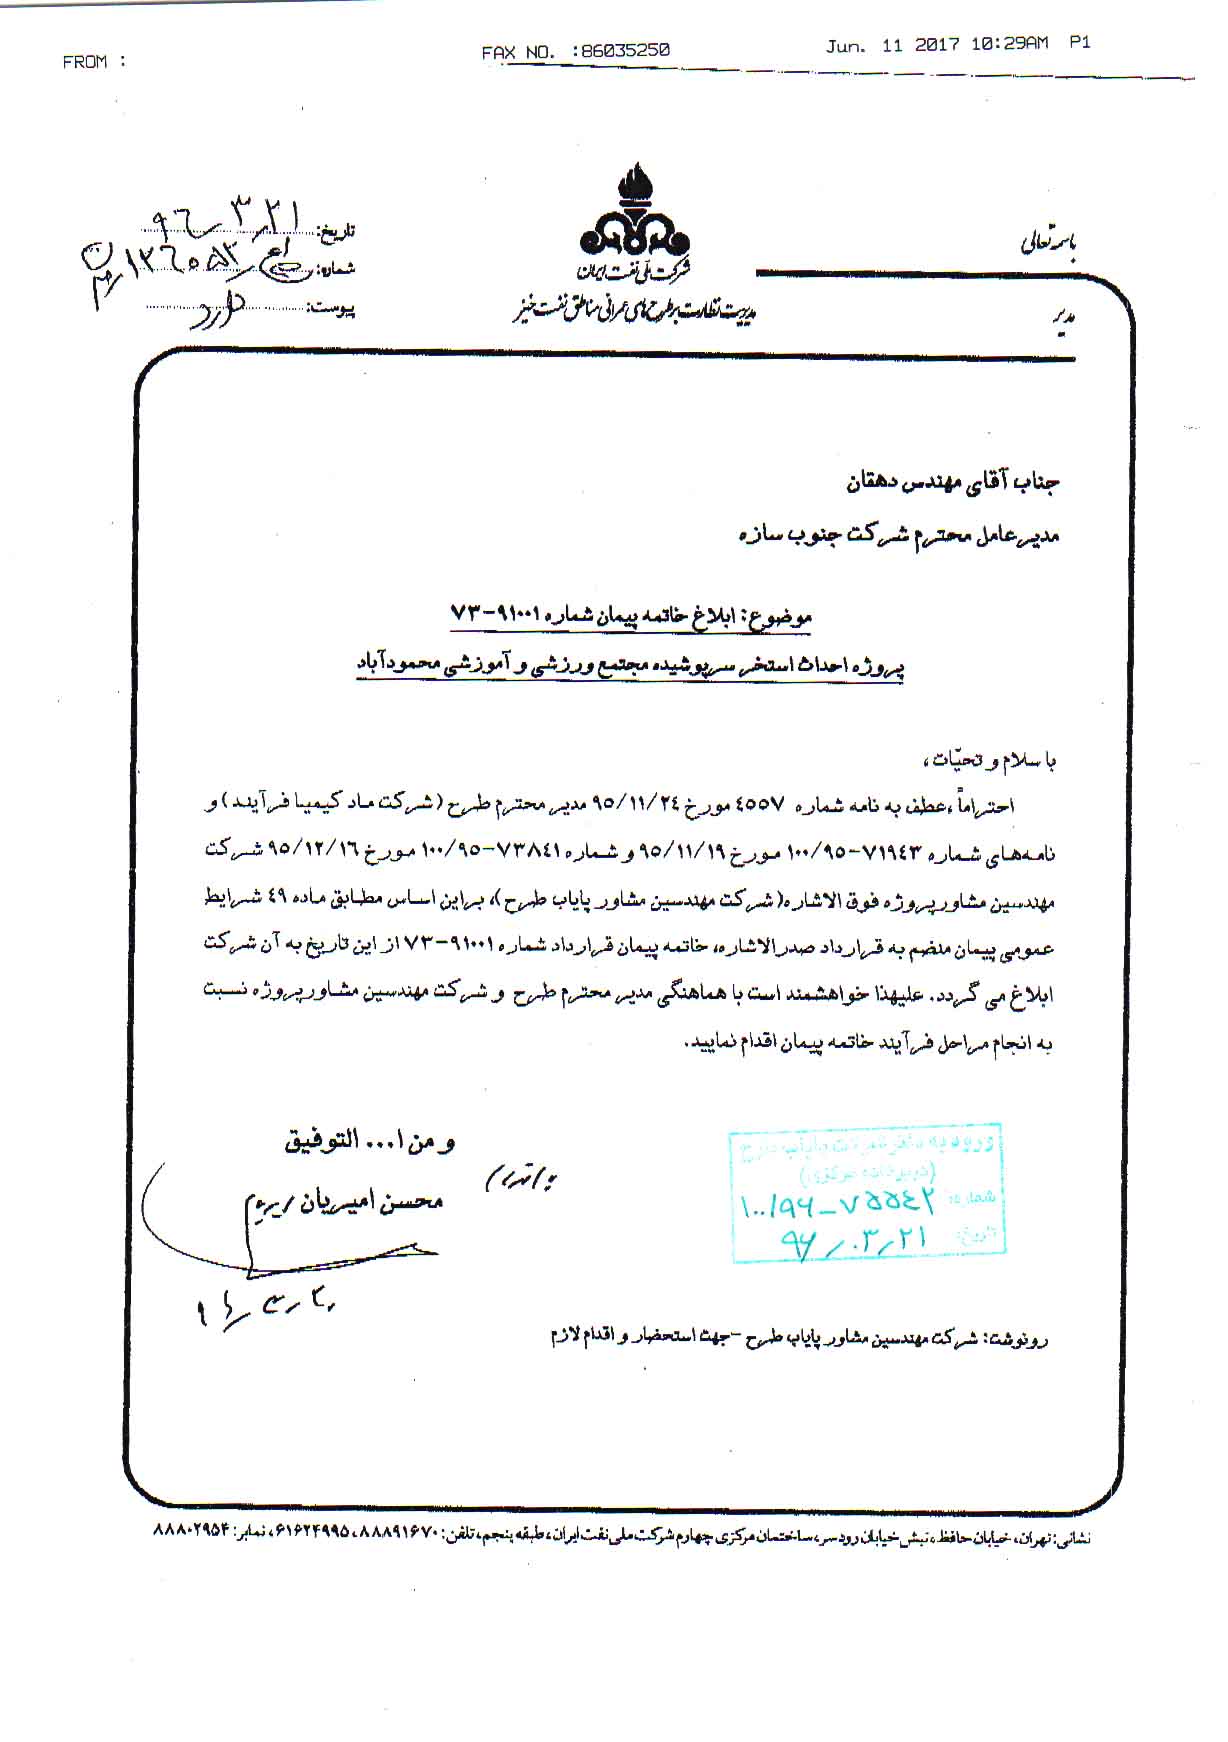 FROM :
FAX NO. :86035250
Jun. 11 2017 10:29AM P1
باسمه تعالی
شرکت ملی نفت ایران
مدیریت نظارت بر طرح های عمرانی مناطق نفت خیز
مدیر
تاریخ: ۹۶/۳/۲۱
شماره:
پیوست: دارد
جناب آقای مهندس دهقان
مدیرعامل محترم شرکت جنوب سازه
موضوع: ابلاغ خاتمه پیمان شماره ۹۱۰۰۱-۷۳
پروژه احداث استخر سرپوشیده مجتمع ورزشی و آموزشی محمودآباد
با سلام و تحیّات،
احتراماً، عطف به نامه شماره ۴۵۵۷ مورخ ۹۵/۱۱/۲۴ مدیر محترم طرح (شرکت ماد کیمیا فرآیند) و
نامه‌های شماره ۷۱۹۴۳-۱۰۰/۹۵ مورخ ۹۵/۱۱/۱۹ و شماره ۷۳۸۴۱-۱۰۰/۹۵ مورخ ۹۵/۱۲/۱۶ شرکت
مهندسین مشاور پروژه فوق الاشاره (شرکت مهندسین مشاور پایاب طرح)، براین اساس مطابق ماده ۴۹ شرایط
عمومی پیمان منضم به قرارداد صدرالاشاره، خاتمه پیمان قرارداد شماره ۹۱۰۰۱-۷۳ از این تاریخ به آن شرکت
ابلاغ می گردد. علیهذا خواهشمند است با هماهنگی مدیر محترم طرح و شرکت مهندسین مشاور پروژه نسبت
به انجام مراحل فرآیند خاتمه پیمان اقدام نمایید.
و من ا... التوفیق
محسن امیریان
ورود به دفتر شرکت پایاب طرح
(دبیرخانه مرکزی)
شماره: ۱۰۰/۹۶-۷۵۵۴۲
تاریخ: ۹۶/۰۳/۲۱
رونوشت: شرکت مهندسین مشاور پایاب طرح -جهت استحضار و اقدام لازم
نشانی: تهران، خیابان حافظ، نبش خیابان رودسر، ساختمان مرکزی چهارم شرکت ملی نفت ایران، طبقه پنجم، تلفن: ۸۸۸۹۱۶۷۰، ۶۱۶۲۴۹۹۵، نمابر: ۸۸۸۰۲۹۵۴